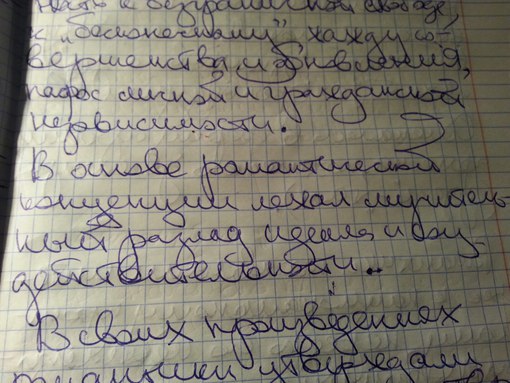 ность к безграничной свободе,
к „бесконечному", жажду со-
вершенства и обновления,
пафос личной и гражданской
независимости.
В основе романтической
концепции лежал мучитель-
ный разлад идеала и
действительности..
В своих произведениях
романтики утверждали